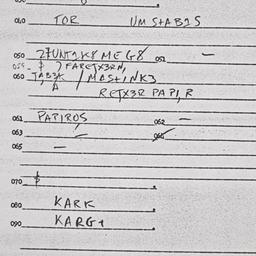 040 TOR UM STABIS
050 27UNT1K8 MEG8 051 —
055 $ ) FARETX3RN,
060 TAB3K / MAST1NK3
RETX3R PAPI,R
061 PAPIROS 062 —
063 — 064
065 —
070 $
080 KARK
090 KARG1